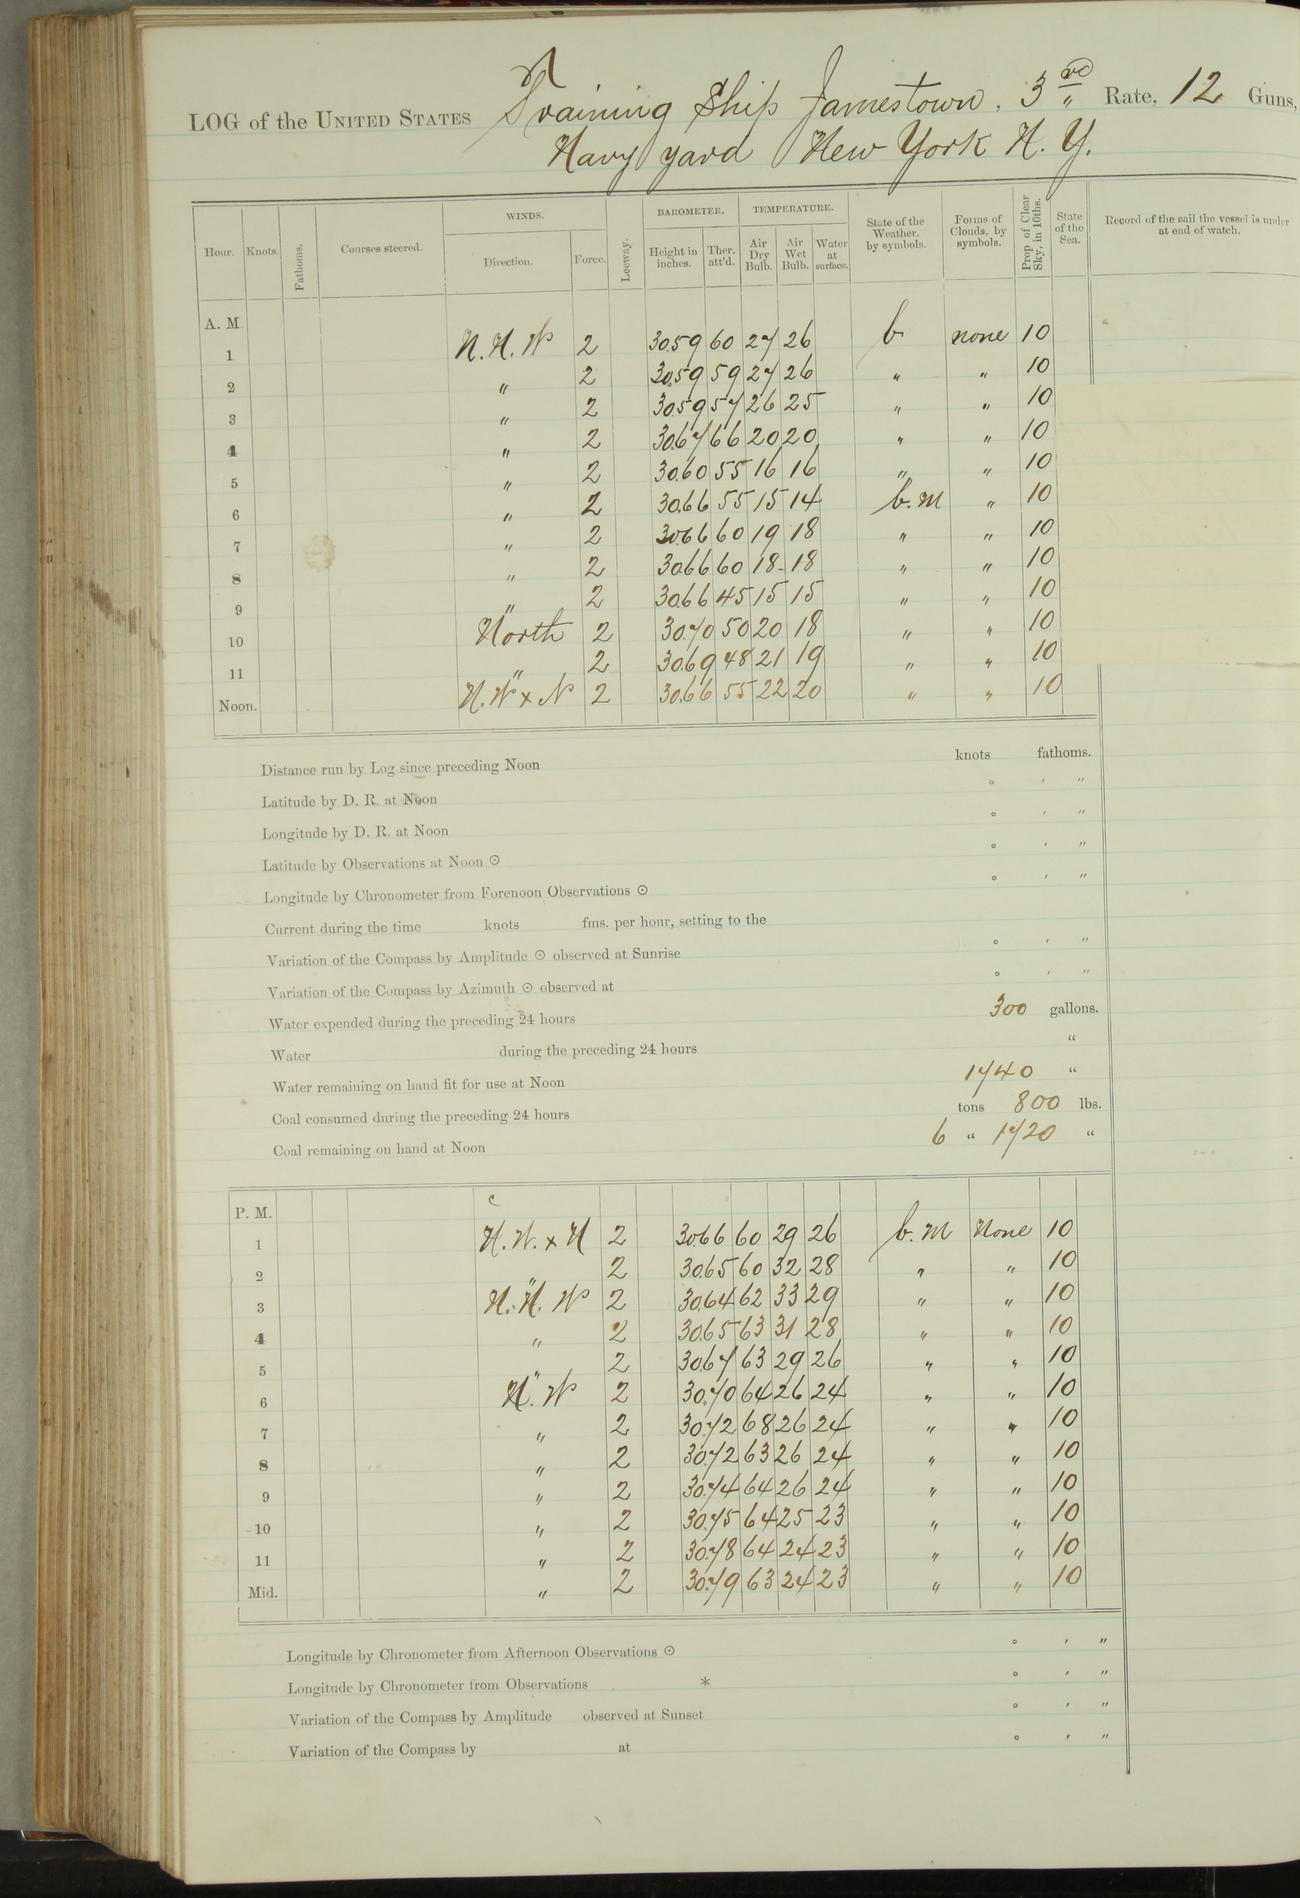 LOG of the UNITED STATES Training Ship Jamestown, 3rd Rate, 12 Guns,
Navy yard New York N. Y.
Hour. Knots. Fathoms. Courses steered. WINDS. Direction. Force. Leeway. BAROMETER. Height in inches. Ther. att'd. TEMPERATURE. Air Dry Bulb. Air Wet Bulb. Water at surface. State of the Weather, by symbols. Forms of Clouds, by symbols. Prop. of Clear Sky, in 10ths. State of the Sea. Record of the sail the vessel is under at end of watch.
A. M.
1 N.N.W 2 30.59 60 27 26 b none 10
2 " 2 30.59 59 27 26 " " 10
3 " 2 30.59 57 26 25 " " 10
4 " 2 30.67 66 20 20 " " 10
5 " 2 30.60 55 16 16 " " 10
6 " 2 30.66 55 15 14 b.m " 10
7 " 2 30.66 60 19 18 " " 10
8 " 2 30.66 60 18 18 " " 10
9 " 2 30.66 45 15 15 " " 10
10 North 2 30.70 50 20 18 " " 10
11 " 2 30.69 48 21 19 " " 10
Noon. N.W x N 2 30.66 55 22 20 " " 10
Distance run by Log since preceding Noon knots fathoms.
Latitude by D. R. at Noon ° ′ ″
Longitude by D. R. at Noon ° ′ ″
Latitude by Observations at Noon ☉ ° ′ ″
Longitude by Chronometer from Forenoon Observations ☉ ° ′ ″
Current during the time knots fms. per hour, setting to the
Variation of the Compass by Amplitude ☉ observed at Sunrise ° ′ ″
Variation of the Compass by Azimuth ☉ observed at ° ′ ″
Water expended during the preceding 24 hours 300 gallons.
Water during the preceding 24 hours “
Water remaining on hand fit for use at Noon 1740 “
Coal consumed during the preceding 24 hours tons 800 lbs.
Coal remaining on hand at Noon 6 “ 1720 “
P. M.
1 N.W. x N 2 30.66 60 29 26 b.m None 10
2 " 2 30.65 60 32 28 " " 10
3 N.N.W 2 30.64 62 33 29 " " 10
4 " 2 30.65 63 31 28 " " 10
5 " 2 30.67 63 29 26 " " 10
6 N.W 2 30.70 64 26 24 " " 10
7 " 2 30.72 68 26 24 " " 10
8 " 2 30.72 63 26 24 " " 10
9 " 2 30.74 64 26 24 " " 10
10 " 2 30.75 64 25 23 " " 10
11 " 2 30.78 64 24 23 " " 10
Mid. " 2 30.79 63 24 23 " " 10
Longitude by Chronometer from Afternoon Observations ☉ ° ′ ″
Longitude by Chronometer from Observations * ° ′ ″
Variation of the Compass by Amplitude observed at Sunset ° ′ ″
Variation of the Compass by at ° ′ ″